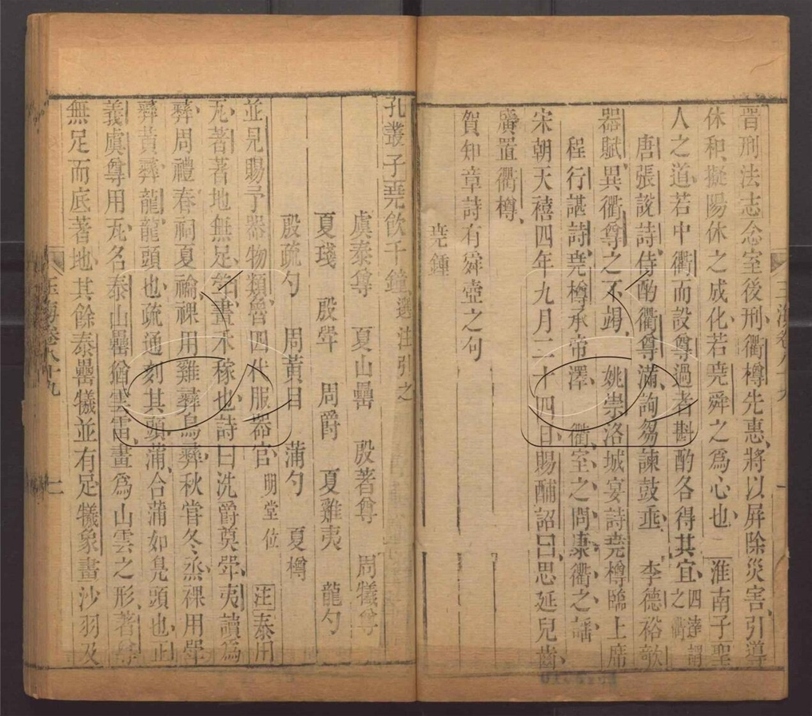 晉刑法志念室後刑衢樽先惠將以屏除災害引導
休和擬陽休之成化若堯舜之爲心也 淮南子聖
人之道若中衢而設尊過者斟酌各得其宜四達謂之衢
唐張說詩侍酌衢尊滿詢芻諫鼓垂 李德裕欹
器賦異衢尊之不竭 姚崇洛城宴詩堯樽臨上席
程行諶詩堯樽承帝澤 衢室之問康衢之謡
宋朝天禧四年九月二十四日賜酺詔曰思延兒齒
廣置衢樽
賀知章詩有舜壺之句
堯鍾
孔叢子堯飲千鍾選注引之
虞泰尊 夏山罍 殷著尊 周犧尊
夏琖 殷斝 周爵 夏雞夷 龍勺
殷疏勺 周黃目 蒲勺 夏樽
並見賜予器物類魯四代服器官明堂位 注泰用
瓦著著地無足斝畫禾稼也詩曰洗爵奠斝夷讀爲
彝周禮春祠夏禴祼用雞彝鳥彝秋嘗冬烝祼用斝
彝黃彝龍龍頭也疏通刻其頭蒲合蒲如鳧頭也正
義虞尊用瓦名泰山罍猶雲雷畫爲山雲之形著尊
無足而底著地其餘泰罍犧並有足犧象畫沙羽及
玉海卷八十九